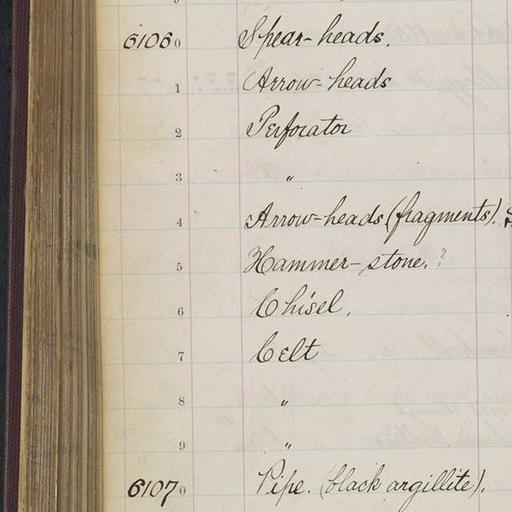 61060 Spear-heads.
1 Arrow-heads
2 Perforator
3 "
4 Arrow-heads (fragments).
5 Hammer-stone.?
6 Chisel.
7 Celt
8 "
9 "
61070 Pipe. (black argillite).